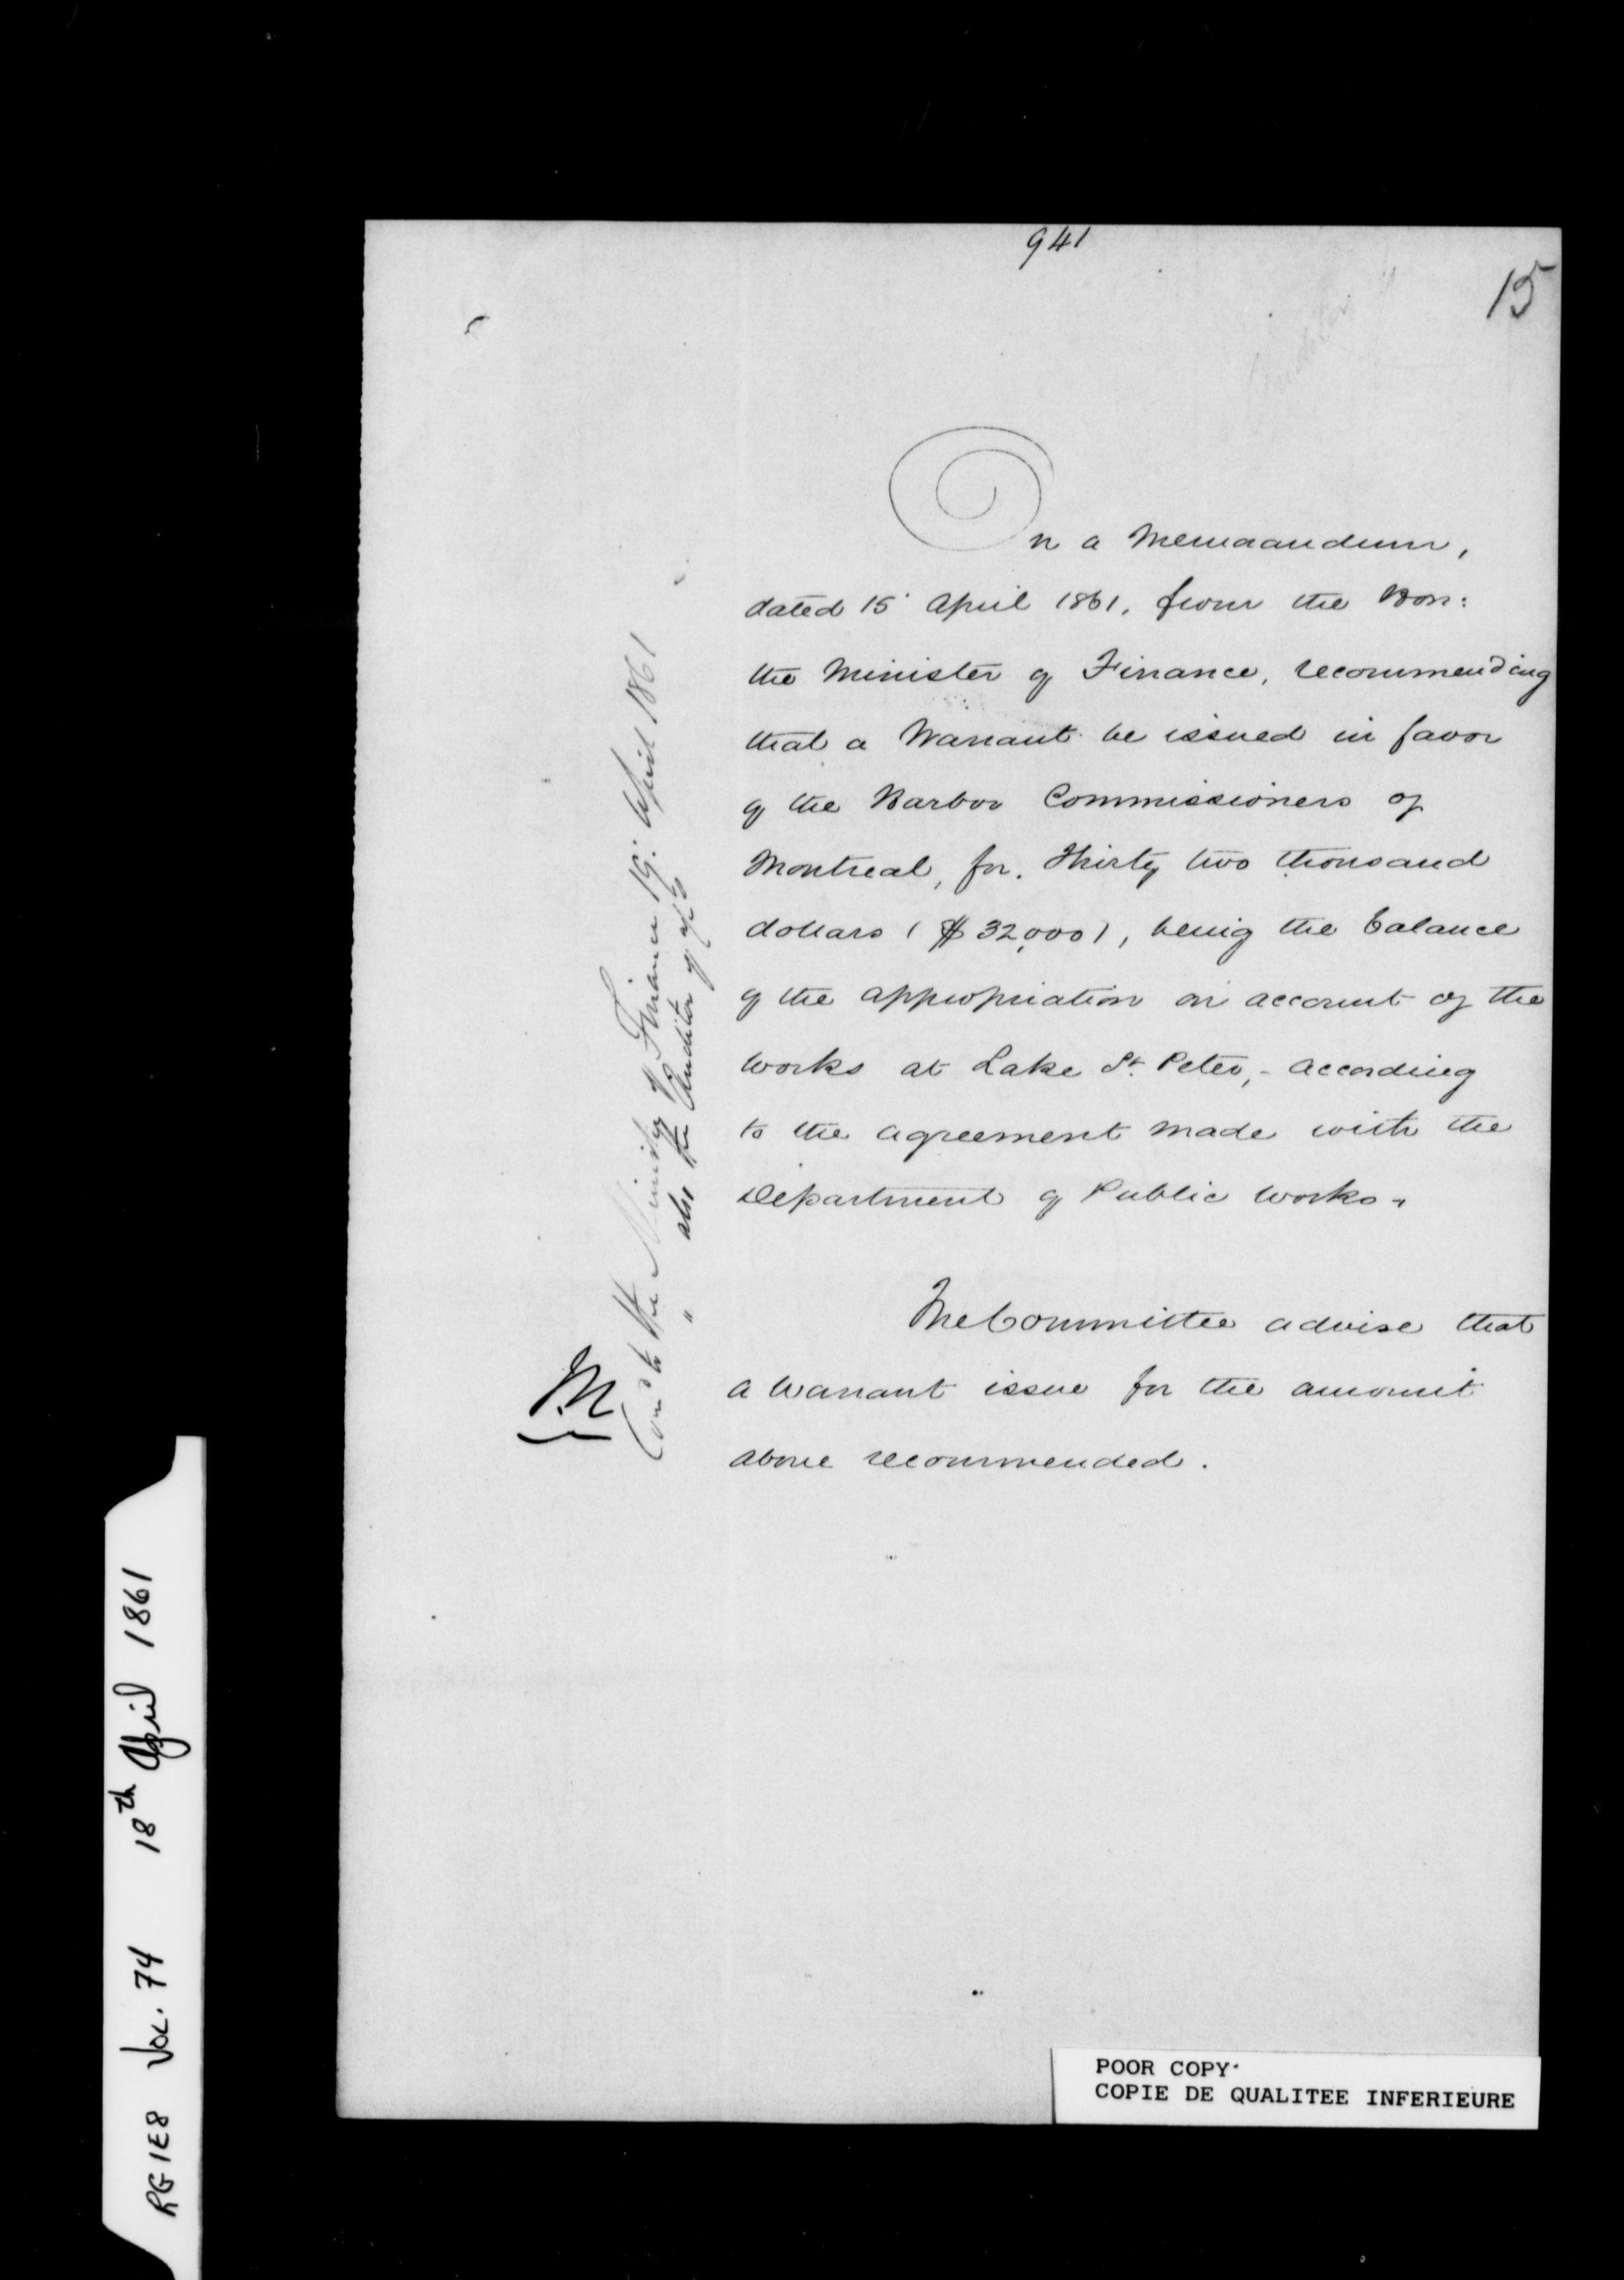 941
15
On a Memorandum,
dated 15 April 1861, from the Hon:
the Minister of Finance, recommending
that a Warrant be issued in favor
of the Harbor Commissioners of
Montreal, for Thirty two thousand
dollars ($32,000), being the balance
of the appropriation on account of the
works at Lake St. Peter, - according
to the agreement made with the
Department of Public Works.
The Committee advise that
a Warrant issue for the amount
above recommended.
M
to the Minister of Finance 19: April 1861
" also the Auditor
RG 1E8 VOL. 74 18th April 1861
POOR COPY
COPIE DE QUALITEE INFERIEURE